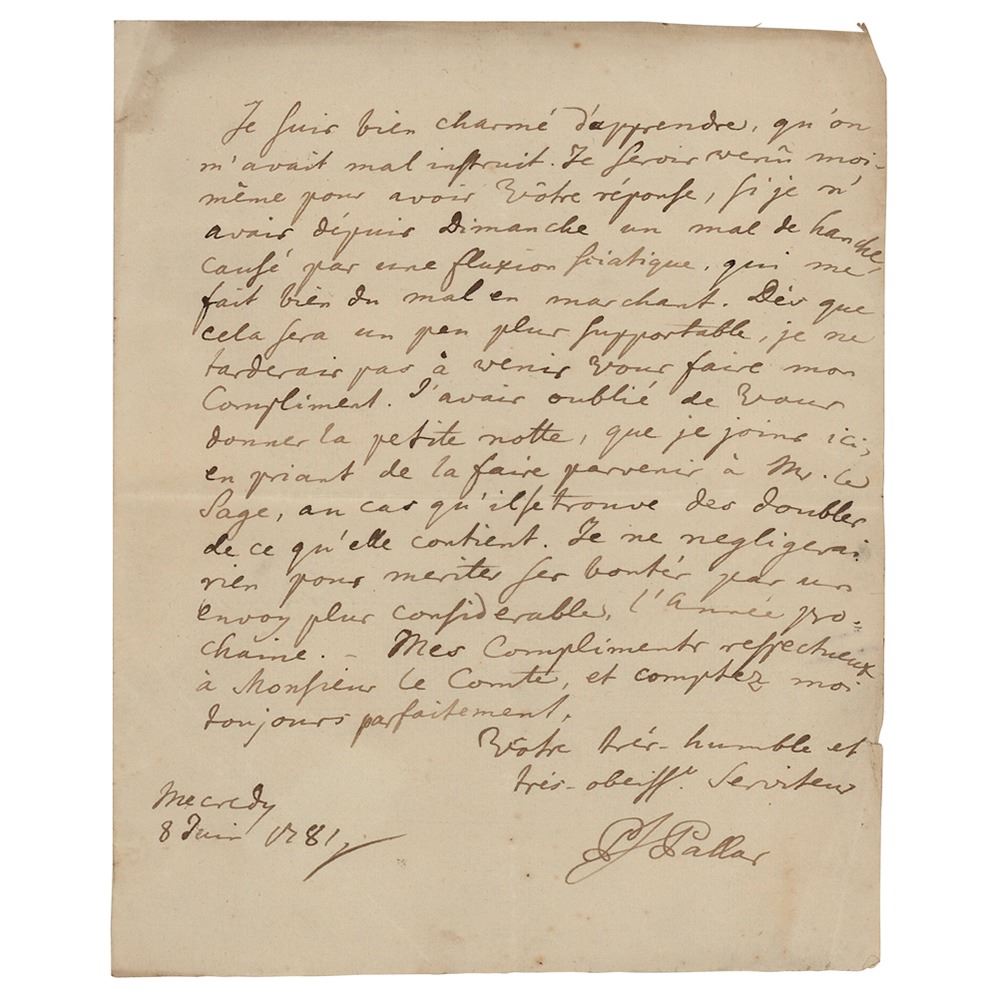 Je suis bien charmé d'apprendre, qu'on
m'avait mal instruit. Je serois venû moi-
même pour avoir Vôtre réponse, si je n'
avais dépuis Dimanche un mal de hanche,
causé par une fluxion sciatique, qui me
fait bien du mal en marchant. Dès que
cela sera un peu plus supportable, je ne
tarderais pas à venir Vous faire mon
Compliment. J'avais oublié de Vous
donner la petite notte, que je joins ici,
en priant de la faire parvenir à Mr. le
Sage, au cas qu'il se trouve des doubles
de ce qu'elle contient. Je ne negligerai
rien pour meriter ses bontés par un
envoy plus considerable, l'Année pro-
chaine. – Mes Compliments respectueux
à Monsieur le Comte, et comptez moi
toujours parfaitement,
Vôtre trés-humble et
trés-obeisst. Serviteur
Mecredy
8 Juin 1781,
PS Pallas